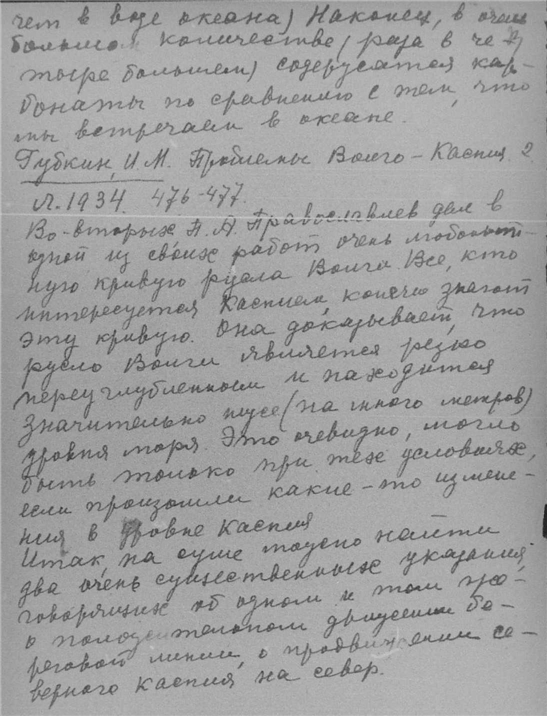 чем в воде океана) Наконец, в очень
большом количестве (раза в че-
тыре большем) содержатся кар-
бонаты по сравнению с тем, что
мы встречаем в океане.
Губкин, И.М. Проблемы Волго-Каспия. 2
Л. 1934. 476-477.
Во-вторых П.А. Православлев дал в
одной из своих работ очень любопыт-
ную кривую русла Волги. Все, кто
интересуется Каспием, конечно знают
эту кривую. Она доказывает, что
русло Волги является резко
переуглубленным и находится
значительно ниже (на много метров)
уровня моря. Это очевидно, могло
быть только при тех условиях,
если произошли какие-то измене-
ния в уровне Каспия
Итак, на суше можно найти
два очень существенных указания,
говорящих об одном и том же-
о положительном движении бе-
реговой линии, о продвижении се-
верного Каспия на север.